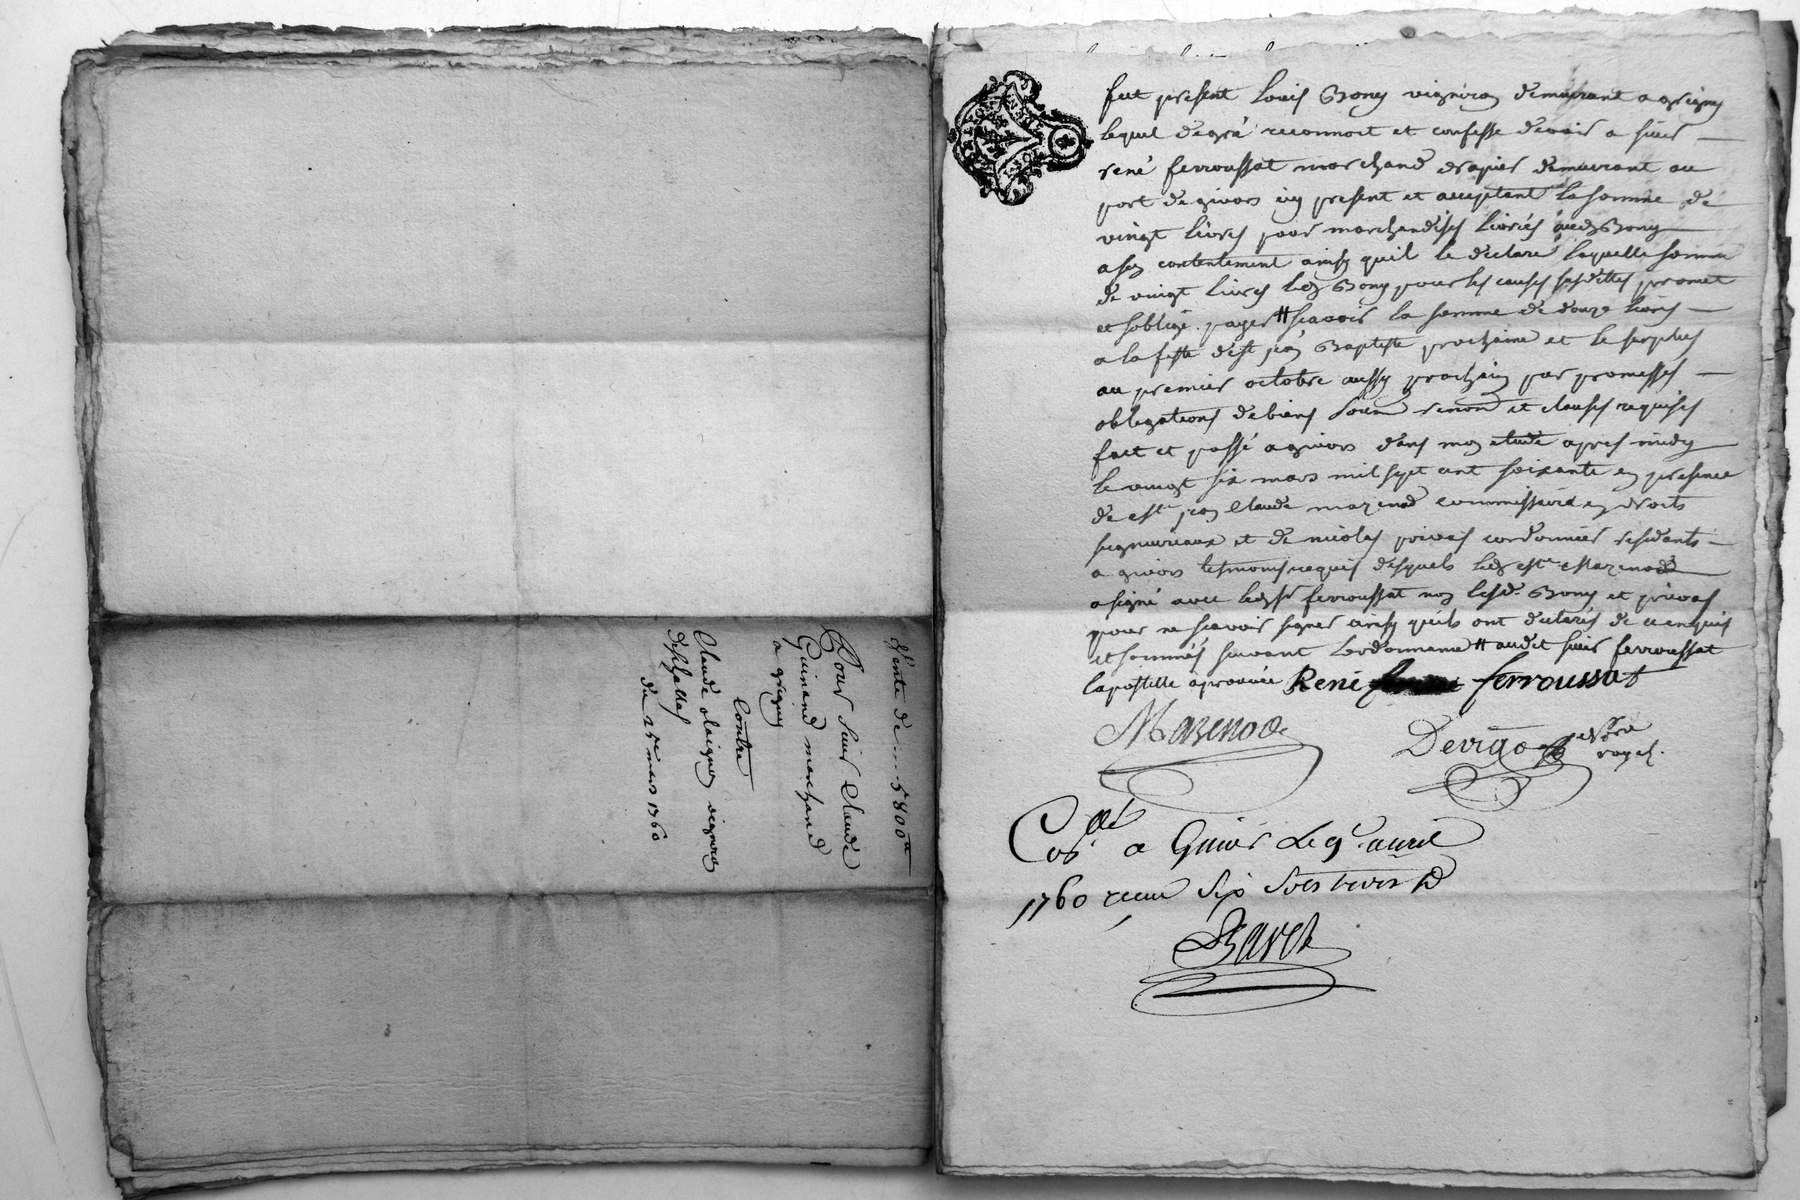 Vente de .... 5800lt
Pour Sieur Claude
Guinand marchand
a grigny
Contre
Claude vigneron
du 25e mars 1760
fut present Louis Bony vigneron demeurant a grigny
lequel de gré reconnoit et confesse devoir a sieur
rené ferroussat marchand drapier demeurant au
port de givors icy present et acceptant la somme de
vingt livres pour marchandises livrées audt Bony
a son contentement ainsy quil le declare laquelle somme
de vingt livres ledt Bony pour les causes susdittes promet
et soblige payer # scavoir la somme de douze livres
a la feste de st jean Baptiste prochaine et le surplus
au premier octobre aussy prochain par promesses
obligations de biens soum renon et clauses requises
fait et passé a givors dans mon etude apres midy
le vingt six mars mil sept cent soixante en presence
de jean Claude mazenod commissaire en droits
seigneuriaux et de nicolas privas cordonnier residants
a givors temoins requis desquels ledt Mazenod
a signé avec ledt sr ferroussat non lesd. Bony et privas
pour ne scavoir signer ainsy quils ont declarés de ce enquis
et sommés suivant lordonnance # audit sieur ferroussat
lapostille aprouvée René ferroussat
Mazenod
Devigo nore
royal.
Collé
Con a Givors Le 9e avril
1760 receu six sols trois d
Baret